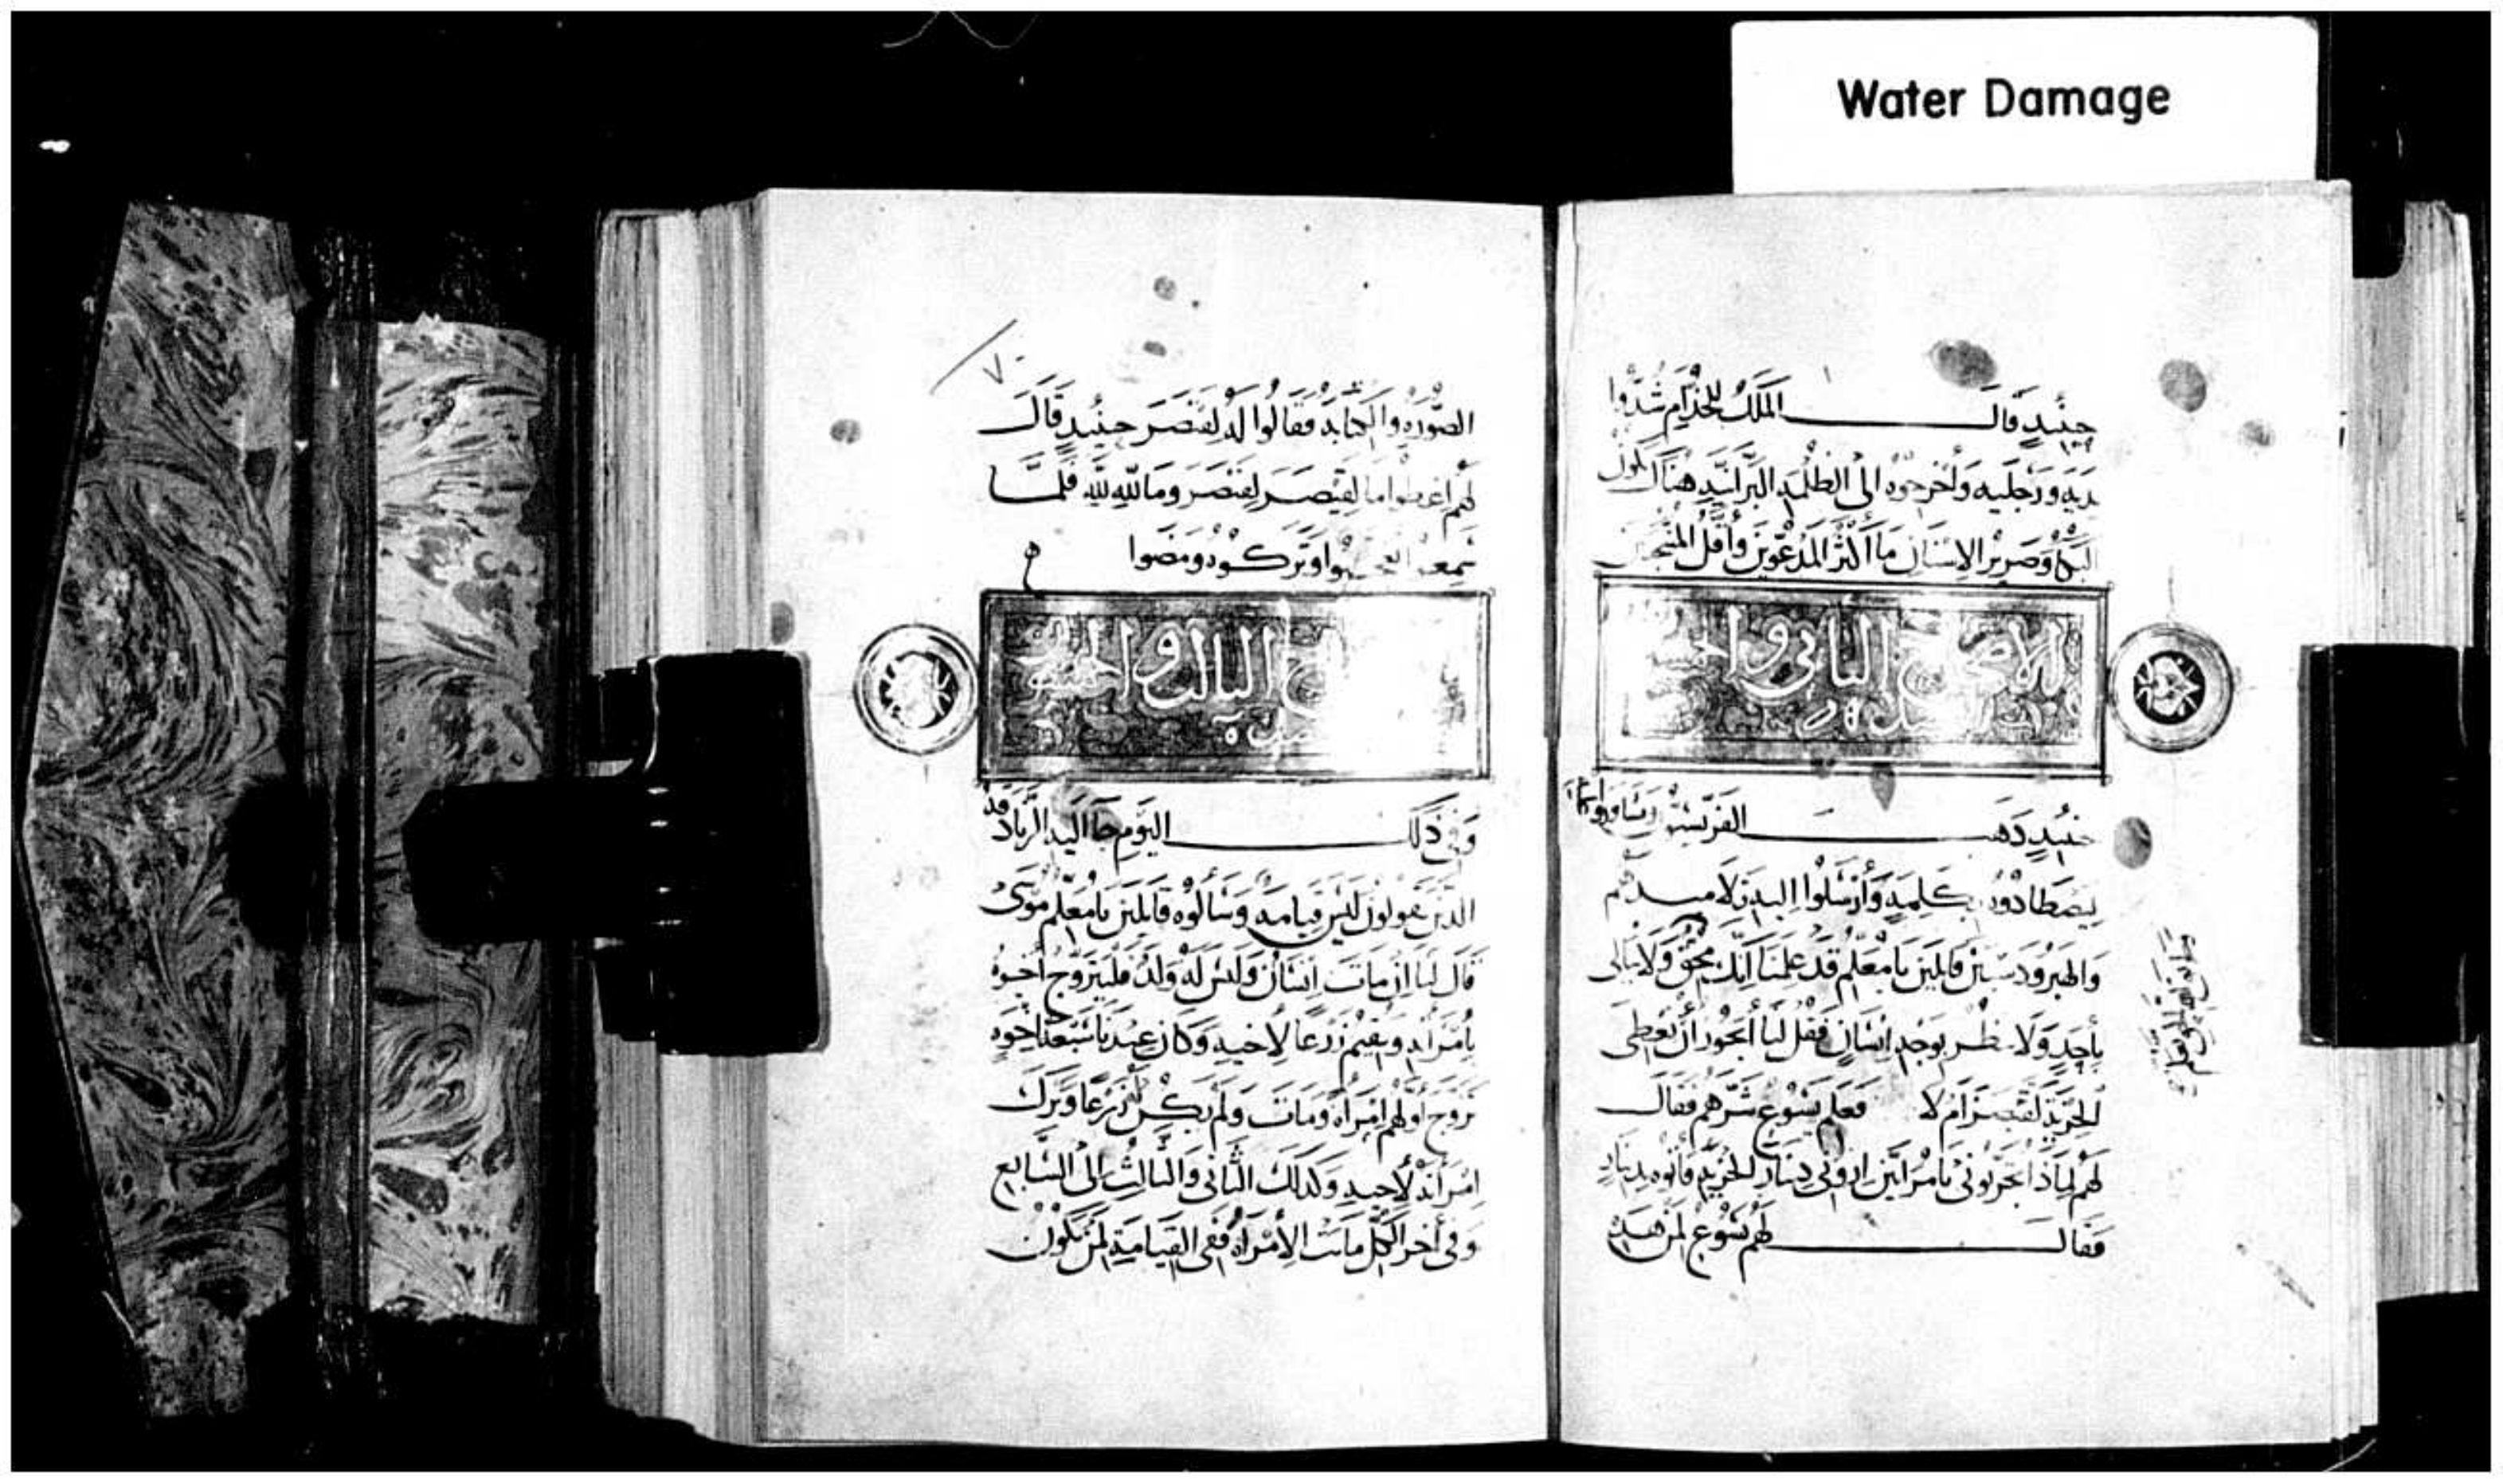 Water Damage
حينيد قال الملك للخدام شدوا
يديه ورجليه واخرجوه الى الظلمه البرانيه هناك يكون
البكا وصرير الاسنان ما اكثر المدعوين واقل المنتجبين
الاصحاح الثاني والخمسون
حينيد دهب الفريسيون وتشاوروا
ليصطادوه بكلمه وارسلوا اليه تلاميدهم
والهيرودسيين قايلين يا معلم قد علمنا انك محق ولا تبالي
بأحد ولا تنظر بوجه انسان فقل لنا أيجوز أن نعطى
الجزية لقيصر ام لا فعلم يسوع شرهم فقال
لهم لماذا تجربوني يا مرائين اروني دينار الجزية فأتوه بدينار
فقال لهم يسوع لمن هده
٧٠
الصوره والكتابه فقالوا له لقيصر حينيد قال
لهم اعطوا ما لقيصر لقيصر وما لله لله فلما
سمعوا تعجبوا وتركوه ومضوا
الثالث والخمسون
وفي ذلك اليوم جا اليه الزنادقه
الدين يقولون ليس قيامه وسألوه قايلين يا معلم موسى
قال لنا ان مات انسان وليس له ولد فليتزوج أخوه
بامرأته ويقيم زرعا لاخيه وكان عندنا سبعة اخوه
تزوج أولهم امرأة ومات ولم يكن له زرعا وترك
امرأته لأخيه وكدلك الثاني والثالث الى السابع
وفي أخر الكل ماتت الأمرأة ففي القيامة لمن تكون